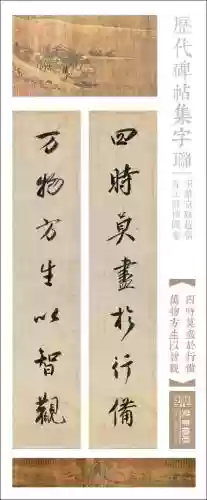 歷代碑帖集字聯
四時莫盡於行備
万物方生以智觀
四時莫盡於行備
萬物方生以智觀